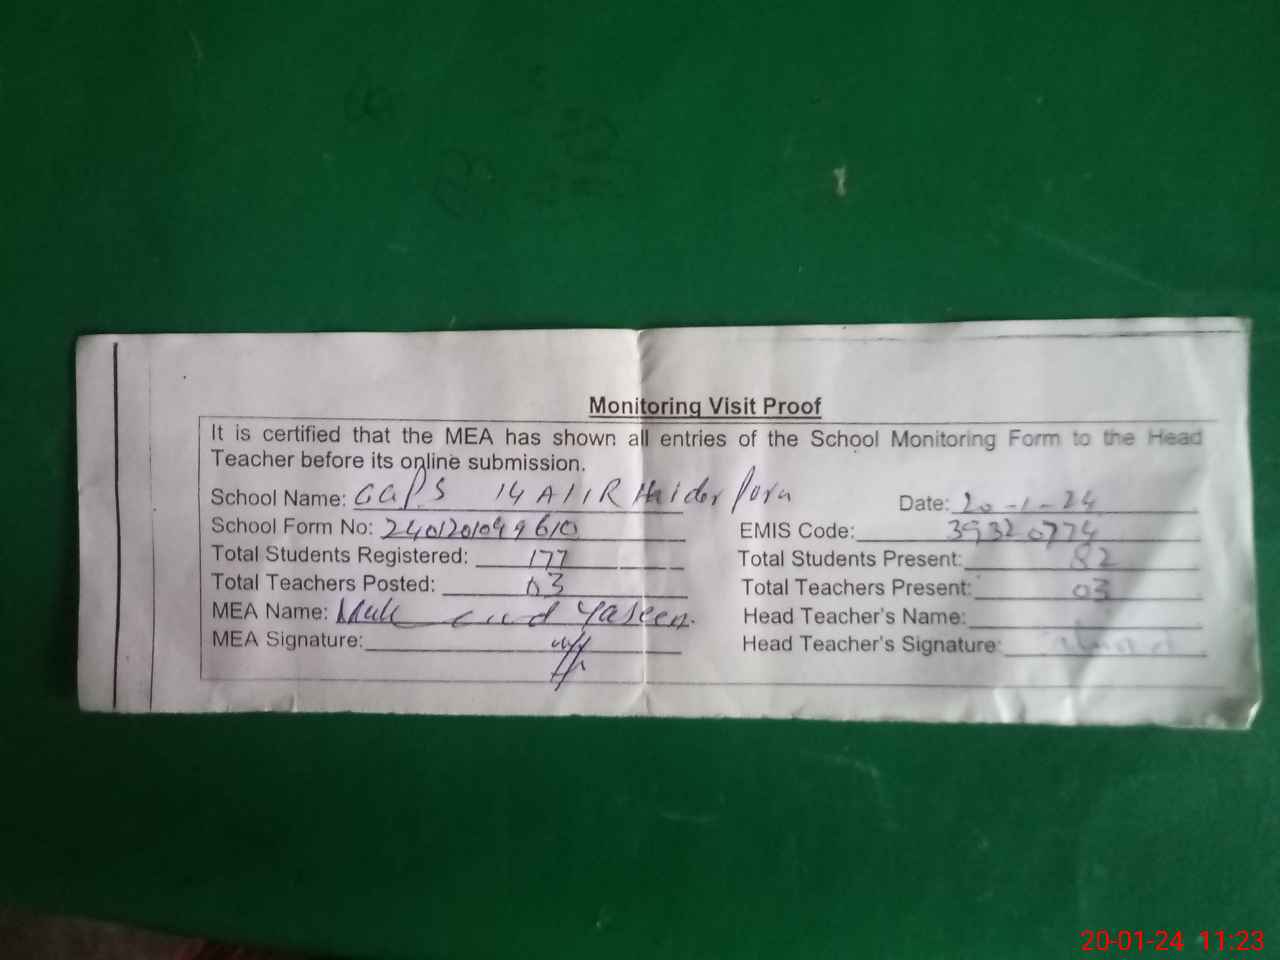 Monitoring Visit Proof
It is certified that the MEA has shown all entries of the School Monitoring Form to the Head
Teacher before its online submission.
School Name: GGPS 14 A/11R Haider Pura Date: 20-1-24
School Form No: 2401201099610 EMIS Code: 39320774
Total Students Registered: 177 Total Students Present: 82
Total Teachers Posted: 03 Total Teachers Present: 03
MEA Name: Yaseen. Head Teacher's Name:
MEA Signature: Head Teacher's Signature:
20-01-24 11:23